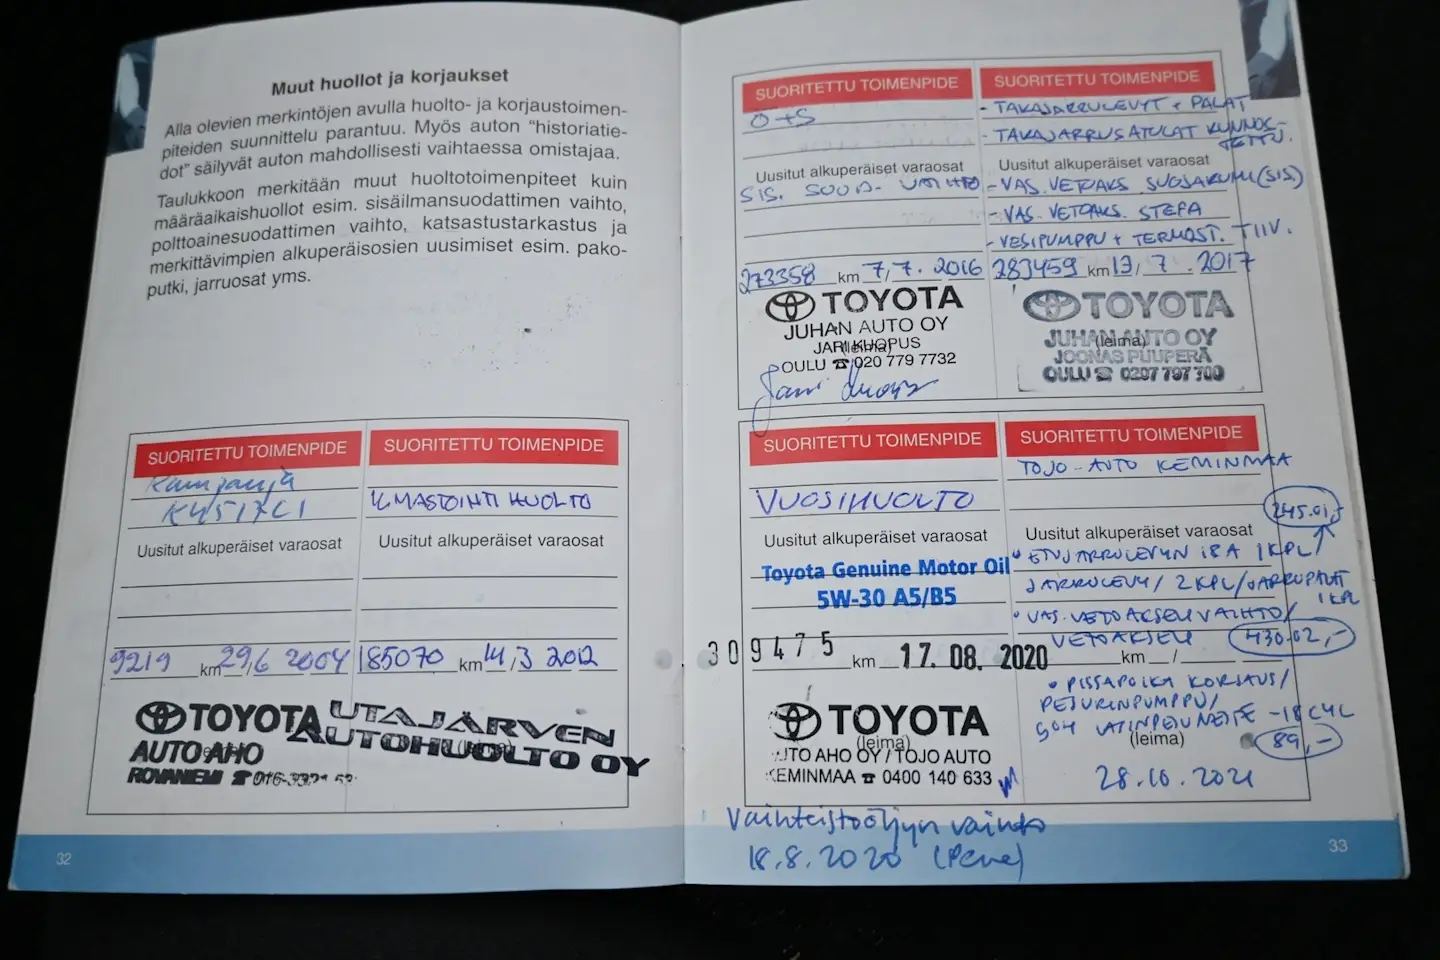 Muut huollot ja korjaukset
Alla olevien merkintöjen avulla huolto- ja korjaustoimen-
piteiden suunnittelu parantuu. Myös auton "historiatie-
dot" säilyvät auton mahdollisesti vaihtaessa omistajaa.
Taulukkoon merkitään muut huoltotoimenpiteet kuin
määräaikaishuollot esim. sisäilmansuodattimen vaihto,
polttoainesuodattimen vaihto, katsastustarkastus ja
merkittävimpien alkuperäisosien uusimiset esim. pako-
putki, jarruosat yms.
SUORITETTU TOIMENPIDE
Kampanja
Uusitut alkuperäiset varaosat
9219 km 29/6 2004
TOYOTA
AUTO AHO
ROVANIEMI ☎ 016-
SUORITETTU TOIMENPIDE
ILMASTOINTI HUOLTO
Uusitut alkuperäiset varaosat
185070 km 14/3 2012
UTAJÄRVEN
AUTOHUOLTO OY
32
SUORITETTU TOIMENPIDE
Ö+S
Uusitut alkuperäiset varaosat
SIS. SUOD- VAIHTO
273358 km 7/7. 2016
TOYOTA
JUHAN AUTO OY
JARI KUOPUS
(leima)
OULU ☎ 020 779 7732
SUORITETTU TOIMENPIDE
- TAKAJARRULEVYT + PALAT
- TAKAJARRUSATULAT KUNNOS-
TETTU.
Uusitut alkuperäiset varaosat
- VAS. VETOAKS SUOJAKUMI (SIS)
- VAS. VETOAKS. STEFA
- VESIPUMPPU + TERMOST. TIIV.
283459 km 13/7.2017
TOYOTA
JUHAN AUTO OY
(leima)
JOONAS PUUPERÄ
OULU ☎ 0207 797 700
SUORITETTU TOIMENPIDE
VUOSIHUOLTO
Uusitut alkuperäiset varaosat
Toyota Genuine Motor Oil
5W-30 A5/B5
309475 km 17.08.2020
TOYOTA
(leima)
AUTO AHO OY / TOJO AUTO
KEMINMAA ☎ 0400 140 633
SUORITETTU TOIMENPIDE
TOJO-AUTO KEMINMAA
245.01,-
Uusitut alkuperäiset varaosat
JARRULEVY/ 2 KPL/JARRUPALAT
1 KPL
• VAS. VETOAKSELI VAIHTO/
VETOAKSELI 430.02,-
km / 
• PISSAPOIKA KORJAUS/
PESURINPUMPPU/
(leima)
89,-
28.10.2021
Vaihteistoöljyn vaihto
18.8.2020
33